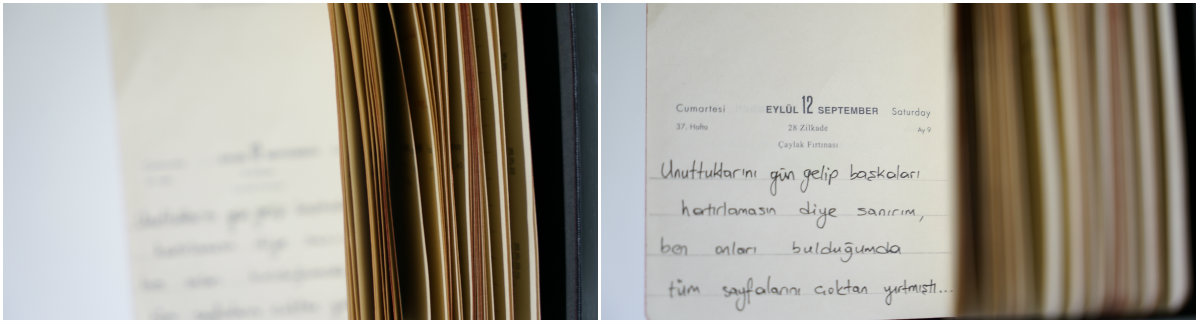 Cumartesi EYLÜL 12 SEPTEMBER Saturday
37. Hafta 28 Zilkade Ay 9
Çaylak Fırtınası
Unuttuklarını gün gelip başkaları
hatırlamasın diye sanırım,
ben onları bulduğumda
tüm sayfalarını çoktan yırtmıştı...